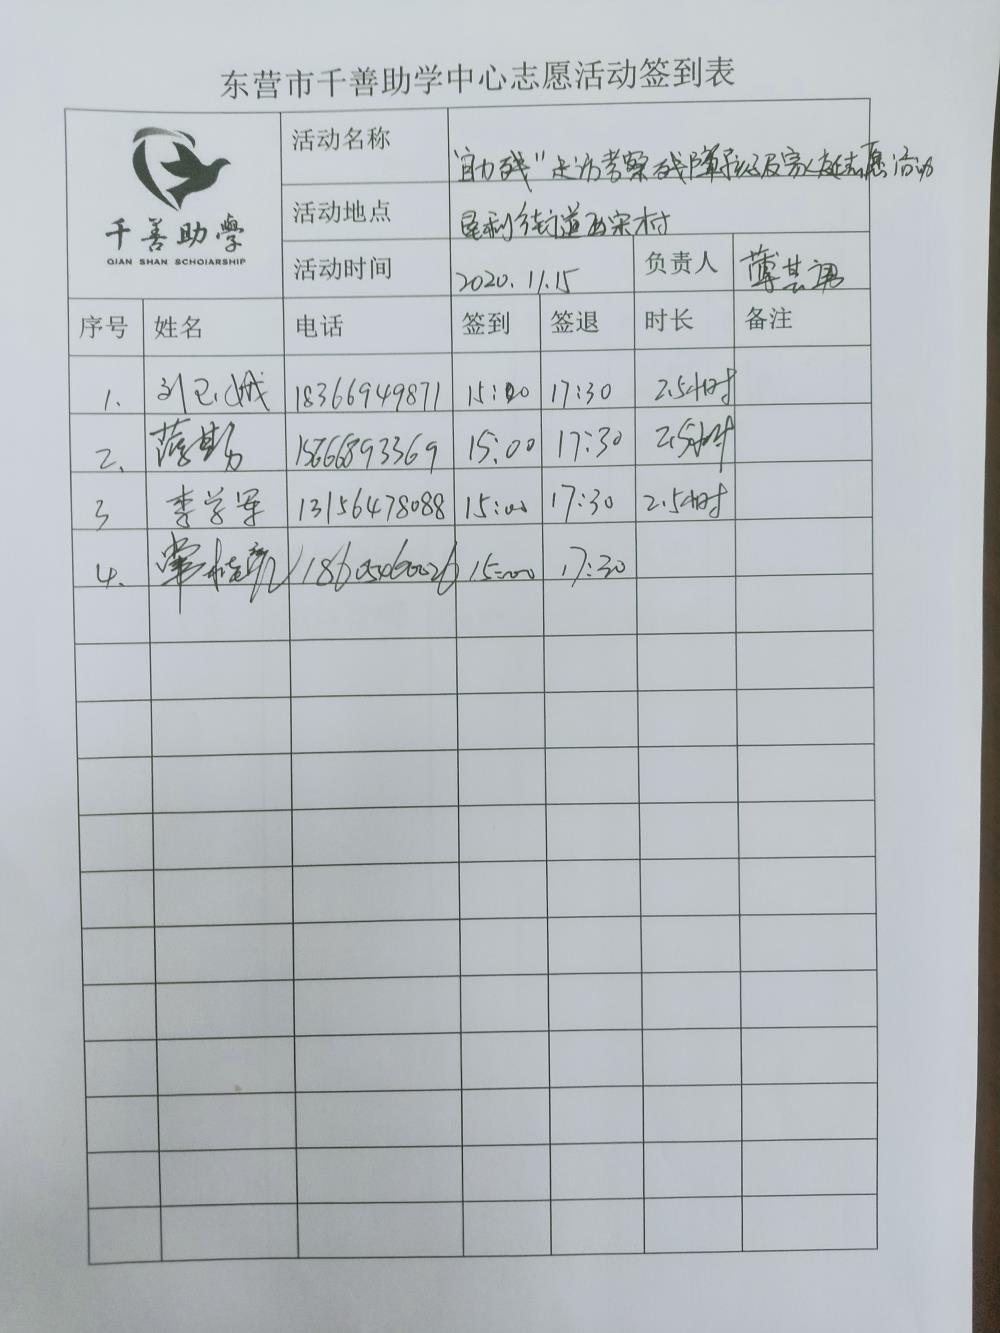 东营市千善助学中心志愿活动签到表
千善助學
QIAN SHAN SCHOIARSHIP
活动名称 "助残"走访考察残障孩及家庭志愿活动
活动地点 垦利街道西宋村
活动时间 2020.11.15 负责人 薄其勇
序号 姓名 电话 签到 签退 时长 备注
1. 18366949871 15:00 17:30 2.5小时
2. 15:00 17:30 2.5小时
3 李学军 13156478088 15:00 17:30 2.5小时
4. 15:00 17:30